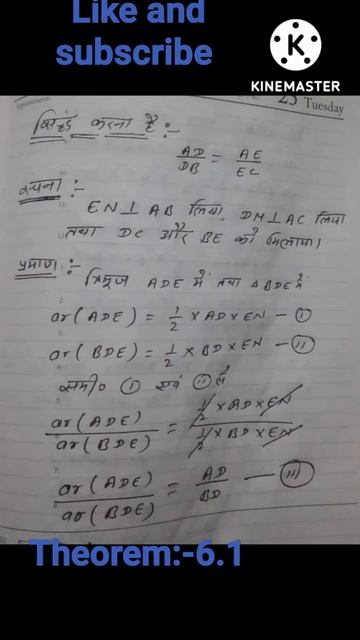 Like and
subscribe
KINEMASTER
25 Tuesday
सिद्ध करना है :-
AD/DB = AE/EC
रचना :-
EN⊥AB लिया, DM⊥AC लिया
तथा DC और BE को मिलाया।
प्रमाण :-
त्रिभुज ADE में तथा ΔBDE में
ar(ADE) = 1/2 × AD × EN — (I)
ar(BDE) = 1/2 × BD × EN — (II)
समी० (I) एवं (II) से
ar(ADE)/ar(BDE) = 1/2 × AD × EN / 1/2 × BD × EN
ar(ADE)/ar(BDE) = AD/BD — (III)
Theorem:-6.1